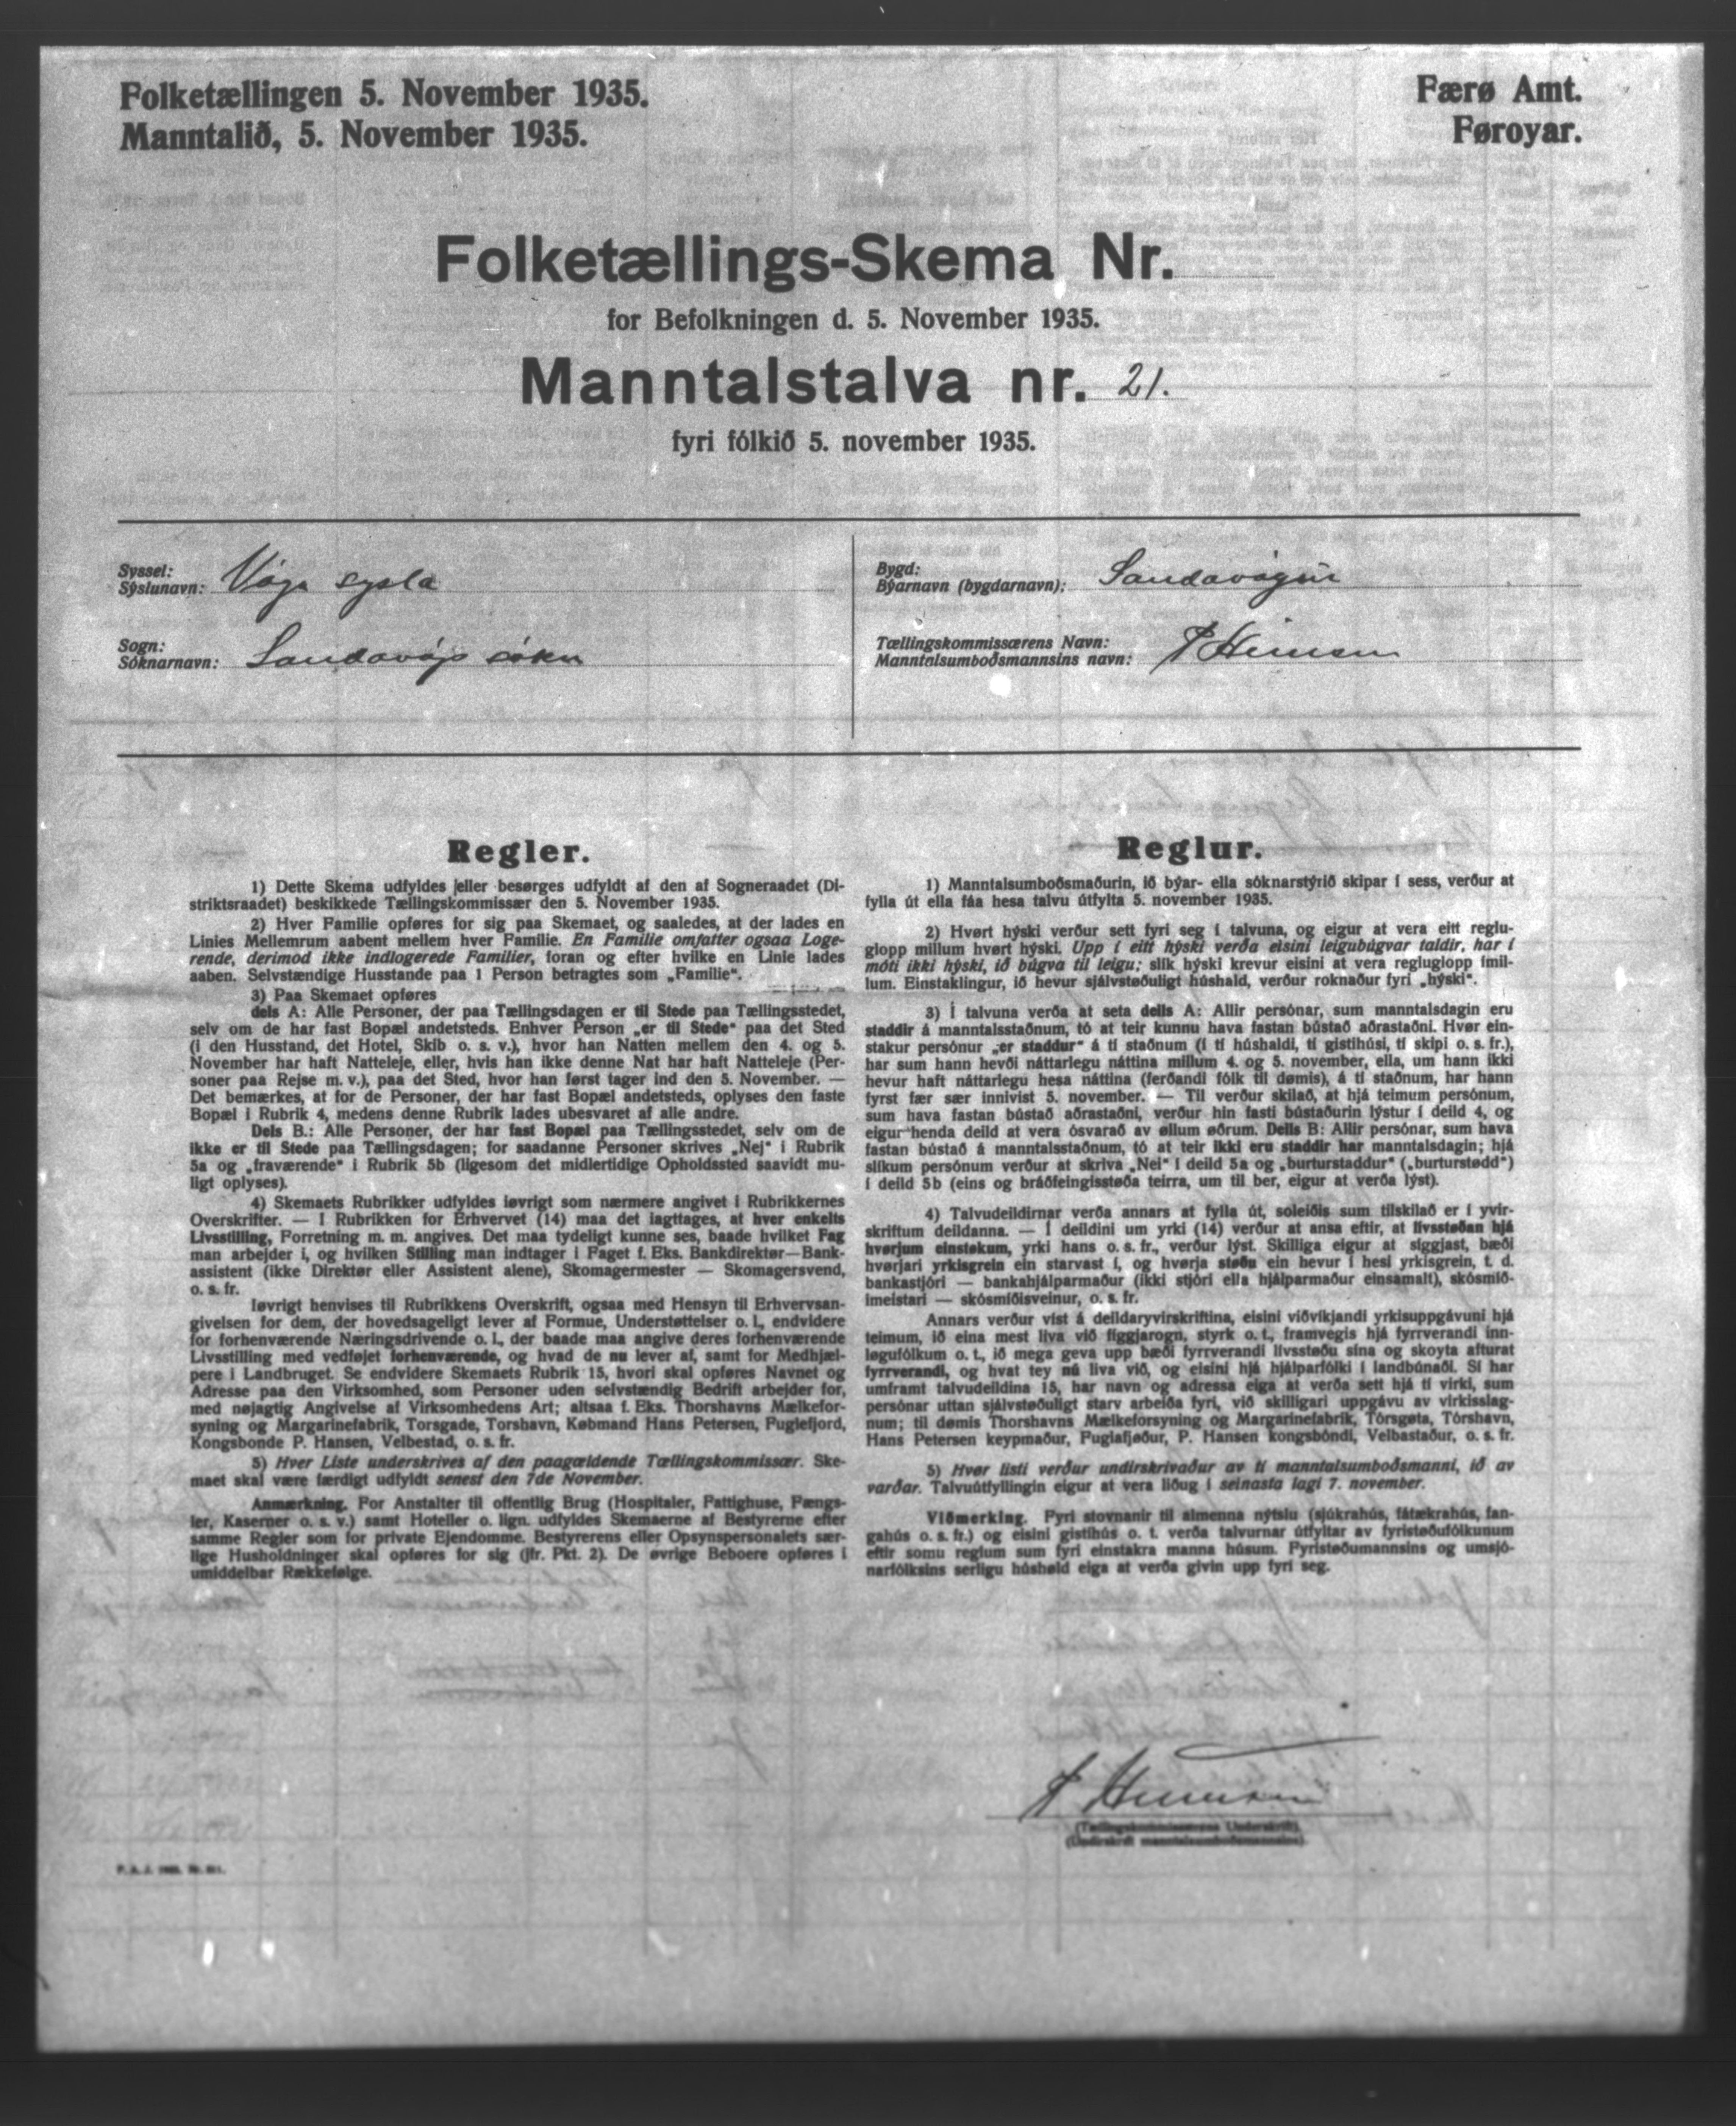 Folketællingen 5. November 1935.
Manntalið, 5. November 1935.
Færø Amt.
Føroyar.
Folketællings-Skema Nr.
for Befolkningen d. 5. November 1935.
Manntalstalva nr. 21.
fyri fólkið 5. november 1935.
Syssel:
Sýslunavn: Vága sysla
Sogn:
Sóknarnavn: Sandavágs sókn
Bygd:
Býarnavn (bygdarnavn): Sandavágur
Tællingskommissærens Navn:
Manntalsumboðsmannsins navn:
Regler.
1) Dette Skema udfyldes eller besørges udfyldt af den af Sogneraadet (Di-
striktsraadet) beskikkede Tællingskommissær den 5. November 1935.
2) Hver Familie opføres for sig paa Skemaet, og saaledes, at der lades en
Linies Mellemrum aabent mellem hver Familie. En Familie omfatter ogsaa Loge-
rende, derimod ikke indlogerede Familier, foran og efter hvilke en Linie lades
aaben. Selvstændige Husstande paa 1 Person betragtes som „Familie“.
3) Paa Skemaet opføres
dels A: Alle Personer, der paa Tællingsdagen er til Stede paa Tællingsstedet,
selv om de har fast Bopæl andetsteds. Enhver Person „er til Stede“ paa det Sted
(i den Husstand, det Hotel, Skib o. s. v.), hvor han Natten mellem den 4. og 5.
November har haft Natteleje, eller, hvis han ikke denne Nat har haft Natteleje (Per-
soner paa Rejse m. v.), paa det Sted, hvor han først tager ind den 5. November. —
Det bemærkes, at for de Personer, der har fast Bopæl andetsteds, oplyses den faste
Bopæl i Rubrik 4, medens denne Rubrik lades ubesvaret af alle andre.
Dels B.: Alle Personer, der har fast Bopæl paa Tællingsstedet, selv om de
ikke er til Stede paa Tællingsdagen; for saadanne Personer skrives „Nej“ i Rubrik
5a og „fraværende“ i Rubrik 5b (ligesom det midlertidige Opholdssted saavidt mu-
ligt oplyses).
4) Skemaets Rubrikker udfyldes iøvrigt som nærmere angivet i Rubrikkernes
Overskrifter. — I Rubrikken for Erhvervet (14) maa det iagttages, at hver enkelts
Livsstilling, Forretning m. m. angives. Det maa tydeligt kunne ses, baade hvilket Fag
man arbejder i, og hvilken Stilling man indtager i Faget f. Eks. Bankdirektør—Bank-
assistent (ikke Direktør eller Assistent alene), Skomagermester — Skomagersvend,
o. s. fr.
Iøvrigt henvises til Rubrikkens Overskrift, ogsaa med Hensyn til Erhvervsan-
givelsen for dem, der hovedsageligt lever af Formue, Understøttelser o. l., endvidere
for forhenværende Næringsdrivende o. l., der baade maa angive deres forhenværende
Livsstilling med vedføjet forhenværende, og hvad de nu lever af, samt for Medhjæl-
pere i Landbruget. Se endvidere Skemaets Rubrik 15, hvori skal opføres Navnet og
Adresse paa den Virksomhed, som Personer uden selvstændig Bedrift arbejder for,
med nøjagtig Angivelse af Virksomhedens Art; altsaa f. Eks. Thorshavns Mælkefor-
syning og Margarinefabrik, Torsgade, Torshavn, Købmand Hans Petersen, Fuglefjord,
Kongsbonde P. Hansen, Velbestad, o. s. fr.
5) Hver Liste underskrives af den paagældende Tællingskommissær. Ske-
maet skal være færdigt udfyldt senest den 7de November.
Anmærkning. For Anstalter til offentlig Brug (Hospitaler, Fattighuse, Fængs-
ler, Kaserner o. s. v.) samt Hoteller o. lign. udfyldes Skemaerne af Bestyrerne efter
samme Regler som for private Ejendomme. Bestyrerens eller Opsynspersonalets sær-
lige Husholdninger skal opføres for sig (jfr. Pkt. 2). De øvrige Beboere opføres i
umiddelbar Rækkefølge.
Reglur.
1) Manntalsumboðsmaðurin, ið býar- ella sóknarstýrið skipar í sess, verður at
fylla út ella fáa hesa talvu útfylta 5. november 1935.
2) Hvørt hýski verður sett fyri seg í talvuna, og eigur at vera eitt reglu-
glopp millum hvørt hýski. Upp í eitt hýski verða eisini leigubúgvar taldir, har í
móti ikki hýski, ið búgva til leigu; slík hýski krevur eisini at vera regluglopp ímil-
lum. Einstaklingur, ið hevur sjálvstøðuligt húshald, verður roknaður fyri „hýski“.
3) Í talvuna verða at seta dells A: Allir persónar, sum manntalsdagin eru
staddir á manntalsstaðnum, tó at teir kunnu hava fastan bústað aðrastaðni. Hvør ein-
stakur persónur „er staddur“ á tí staðnum (í tí húshaldi, tí gistihúsi, tí skipi o. s. fr.),
har sum hann hevði náttarlegu náttina millum 4. og 5. november, ella, um hann ikki
hevur haft náttarlegu hesa náttina (ferðandi fólk til dømis), á tí staðnum, har hann
fyrst fær sær innivist 5. november. — Til verður skilað, at hjá teimum persónum,
sum hava fastan bústað aðrastaðni, verður hin fasti bústaðurin lýstur í deild 4, og
eigur henda deild at vera ósvarað av øllum øðrum. Dells B: Allir persónar, sum hava
fastan bústað á manntalsstaðnum, tó at teir ikki eru staddir har manntalsdagin; hjá
slíkum persónum verður at skriva „Nei“ í deild 5a og „burturstaddur“ („burturstødd“)
í deild 5b (eins og bráðfeingisstøða teirra, um til ber, eigur at verða lýst).
4) Talvudeildirnar verða annars at fylla út, soleiðis sum tilskilað er í yvir-
skriftum deildanna. — Í deildini um yrki (14) verður at ansa eftir, at livsstøðan hjá
hvørjum einstøkum, yrki hans o. s. fr., verður lýst. Skilliga eigur at siggjast, bæði
hvørjari yrkisgrein ein starvast í, og hvørja støðu ein hevur í hesi yrkisgrein, t. d.
bankastjóri — bankahjálparmaður (ikki stjóri ella hjálparmaður einsamalt), skósmið-
imeistari — skósmiðisveinur, o. s. fr.
Annars verður víst á deildaryvirskriftina, eisini viðvíkjandi yrkisuppgávuni hjá
teimum, ið eina mest liva við figgjarogn, styrk o. t., framvegis hjá fyrrverandi inn-
løgufólkum o. t., ið mega geva upp bæði fyrrverandi livsstøðu sína og skoyta afturat
fyrrverandi, og hvat tey nú liva við, og eisini hjá hjálparfólki í landbúnaði. Sí har
umframt talvudeildina 15, har navn og adressa eiga at verða sett hjá tí virki, sum
persónar uttan sjálvstøðuligt starv arbeiða fyri, við skilligari uppgávu av virkisslag-
num; til dømis Thorshavns Mælkeforsyning og Margarinefabrik, Tórsgøta, Tórshavn,
Hans Petersen keypmaður, Fuglafjøður, P. Hansen kongsbóndi, Velbastaður, o. s. fr.
5) Hvør listi verður undirskrivaður av tí manntalsumboðsmanni, ið av
varðar. Talvuútfyllingin eigur at vera liðug í seinasta lagi 7. november.
Viðmerking. Fyri stovnanir til almenna nýtslu (sjúkrahús, fátækrahús, fan-
gahús o. s. fr.) og eisini gistihús o. t. verða talvurnar útfyltar av fyristøðufólkunum
eftir somu reglum sum fyri einstakra manna húsum. Fyristøðumannsins og umsjó-
narfólksins serligu húshøld eiga at verða givin upp fyri seg.
(Tællingskommissærens Underskrift).
(Undirskrift manntalsumboðsmannsins).